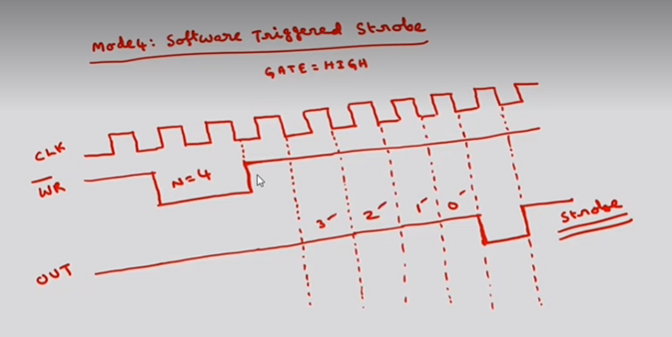 Mode4: Software Triggered Strobe
GATE = HIGH
CLK
W̅R̅
N=4
3 2 1 0
Strobe
OUT